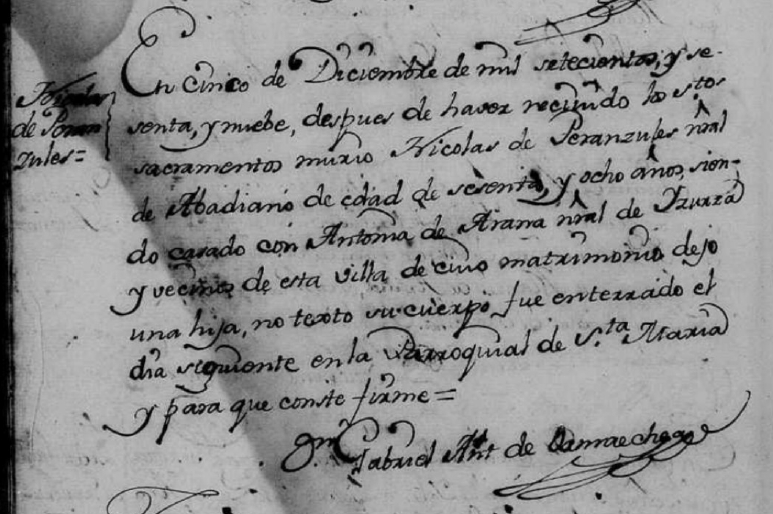 Nicolas
de Peran
zules=
En cinco de Diciembre de mil setecientos, y se-
senta, y nuebe, despues de haver recivido los s.tos
sacramentos murio Nicolas de Peranzules nral
de Abadiano de edad de sesenta, y ocho años, sien-
do casado con Antonia de Arana nral de Yzurza
y vecinos de esta villa de cuio matrimonio dejo
una hija, no texto su cuerpo fue enterrado el
dia siguiente en la Parroquial de S.ta Maria
y para que conste firme=
Dn Gabriel Ant de